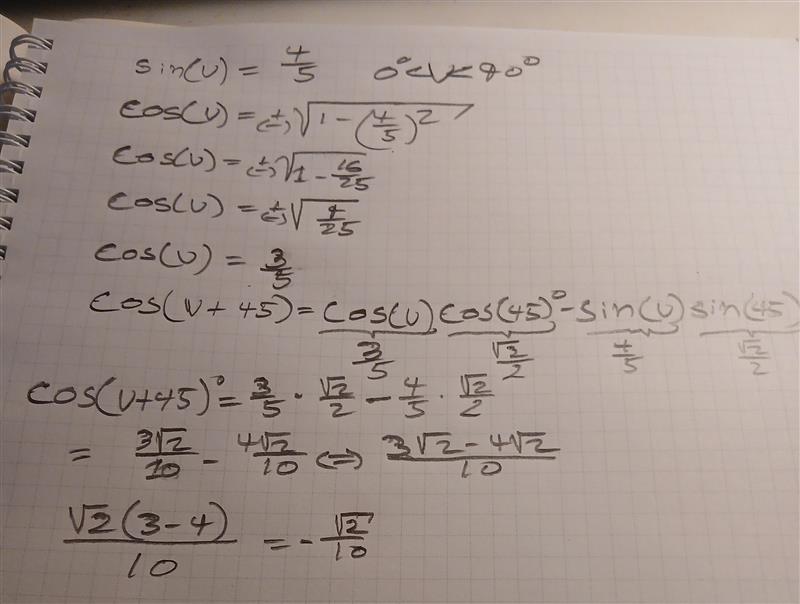 sin(v) = 4/5 0°<v<90°
cos(v) = (±)√(1-(4/5)²)
cos(v) = (±)√(1-16/25)
cos(v) = (±)√(9/25)
cos(v) = 3/5
cos(v+45) = cos(v) cos(45)° - sin(v) sin(45)
3/5 √2/2 4/5 √2/2
cos(v+45)° = 3/5 · √2/2 - 4/5 · √2/2
= 3√2/10 - 4√2/10 ⇔ 3√2-4√2/10
√2(3-4)/10 = -√2/10